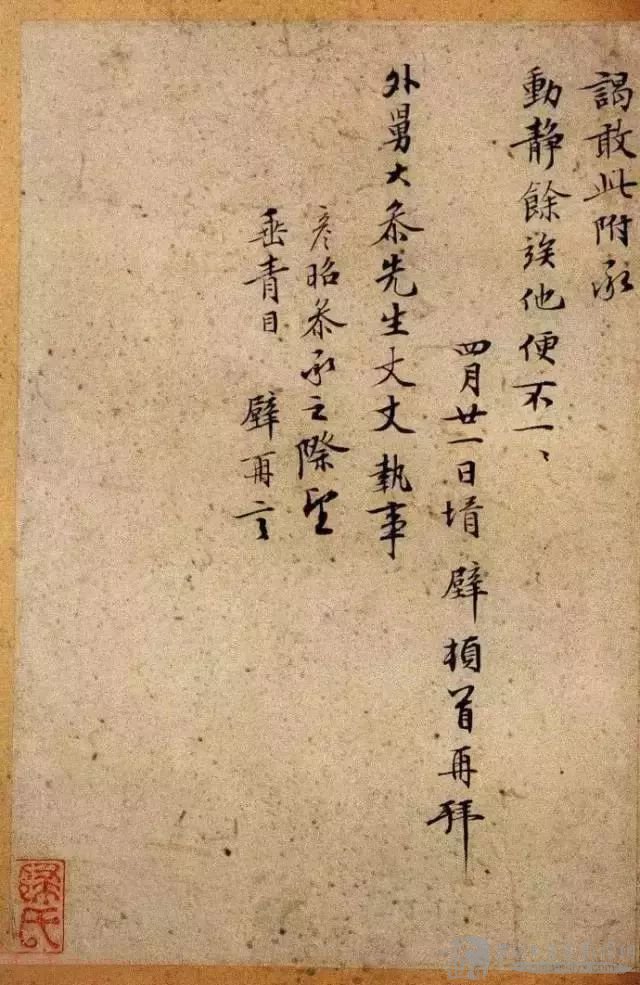 謁敢此附承
動靜餘俟他便不一、
四月廿一日壻璧頓首再拜
外舅大叅先生丈丈執事
彦昭叅承之際望
垂青目 璧再言
氏